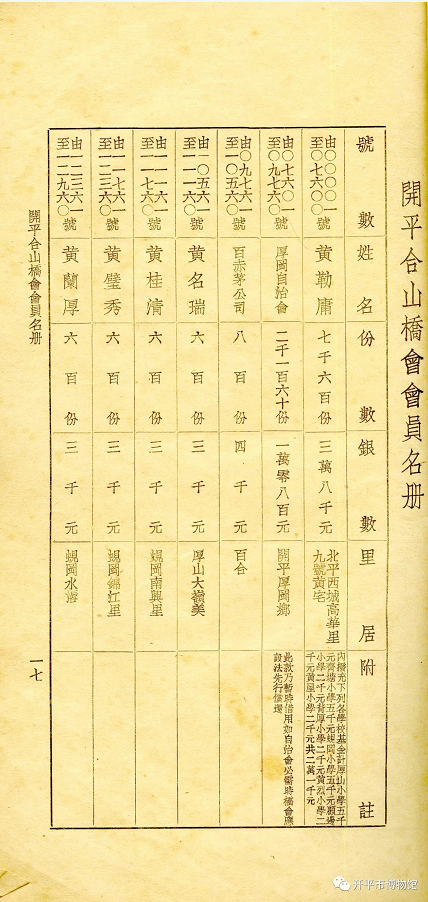 開平合山橋會會員名册
號數 姓名 份數 銀數 里居 附註
由〇〇〇〇一
至〇七六〇〇號 黃勒庸 七千六百份 三萬八千元 北平西城高華里
九號黃宅 內撥充下列各學校基金計厚山小學五千
元齊塘小學五千元蜆岡小學五千元
小學二千元背厚小學二千元黃烈小學二
千元黃屋小學二千元共二萬一千元
由〇七六〇一
至〇九七六〇號 厚岡自治會 二千一百六十份 一萬零八百元 開平厚岡鄉 此款乃暫時借用如自治會必需時橋會應
設法先行償還
由〇九七六一
至一〇五六〇號 百赤茅公司 八百份 四千元 百合
由一〇五六一
至一一一六〇號 黃名瑞 六百份 三千元 厚山大嶺美
由一一一六一
至一一七六〇號 黃桂清 六百份 三千元 蜆岡南興里
由一一七六一
至一二三六〇號 黃璧秀 六百份 三千元 蜆岡錦江里
由一二三六一
至一二九六〇號 黃蘭厚 六百份 三千元 蜆岡水
開平合山橋會會員名册
一七
开平市博物馆